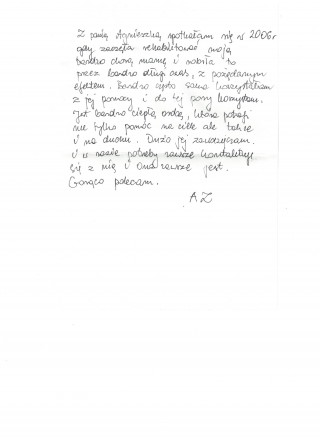 Z panią Agnieszką spotkałam się w 2006 r
gdy zaczęła rehabilitować moją
bardzo chorą mamę i robiła to
przez bardzo długi czas, z pożądanym
efektem. Bardzo często sama korzystałam
z jej pomocy i do tej pory korzystam.
Jest bardzo ciepłą osobą, która potrafi
nie tylko pomóc na ciele ale także
i na duchu. Dużo jej zawdzięczam.
i w razie potrzeby zawsze kontaktuję
się z nią i Ona zawsze jest.
Gorąco polecam.
AZ